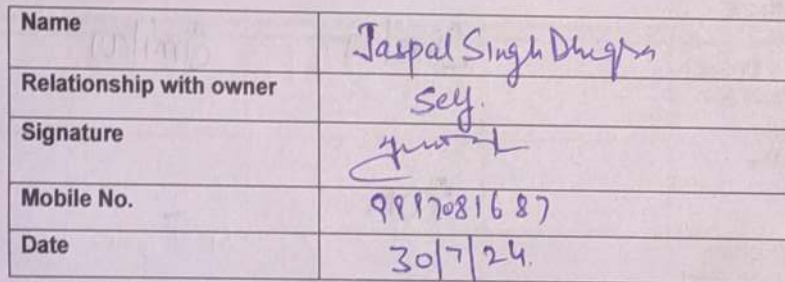 Name Jaspal Singh Dhingra
Relationship with owner Self.
Signature
Mobile No. 9997081687
Date 30/7/24.